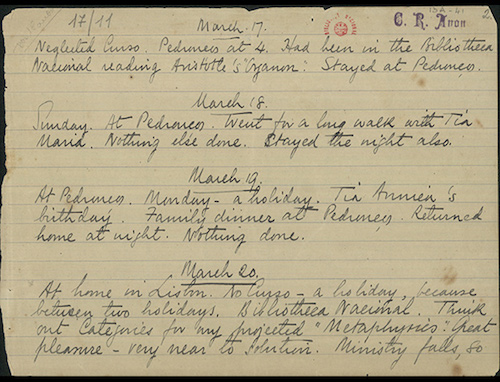 17/11
15A-41
C. R. Anon
2
March. 17.
Neglected Curso. Pedrouços at 4. Had been in the Bibliotheca
Nacional reading Aristotle's "Organon". Stayed at Pedrouços.
March 18.
Sunday. At Pedrouços. Went for a long walk with Tia
Maria. Nothing else done. Stayed the night also.
March 19.
At Pedrouços. Monday – a holiday. Tia Annica's
birthday. Family dinner at Pedrouços. Returned
home at night. Nothing done.
March 20.
At home in Lisbon. No Curso – a holiday, because
between two holidays. Bibliotheca Nacional. Think
out Categories for my projected "Metaphysics". Great
pleasure – very near to solution. Ministry falls, so